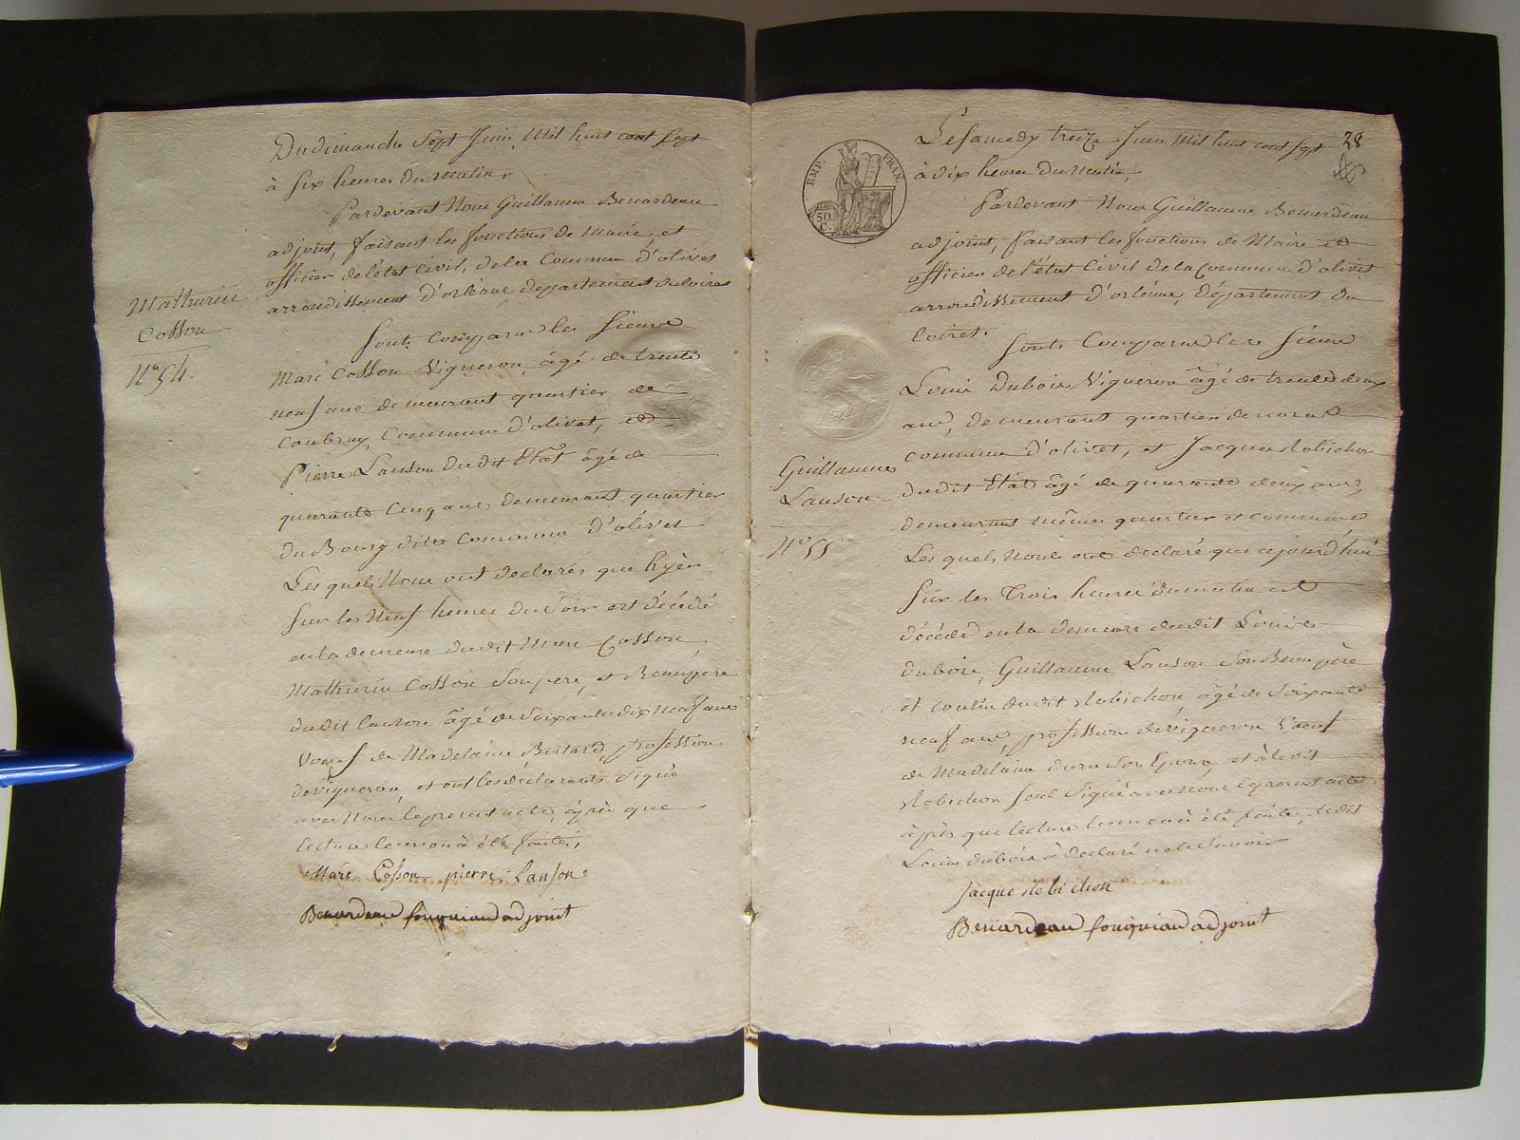 Du dimanche Sept Juin Mil huit cent Sept
à Six heures du matin
Pardevant Nous Guillaume Benardeau
adjoint, faisant les fonctions de Maire, et
officier de l'état Civil, de la Commune d'olivet
arrondissement d'orléans departement du loiret
Mathurin
Cosson
N° 54.
Sont Comparus les Sieurs
Marc Cosson Vigneron, âgé de trente
neuf ans demeurant quartier de
Caubray, Commune d'olivet, et
Pierre Lanson dudit Etat âgé de
quarante Cinq ans demeurant quartier
du Bourg dite Commune d'olivet
Lesquels Nous ont declarés que hyèr
Sur les Neuf heures du Soir est décédé
en la demeure dudit Marc Cosson,
Mathurin Cosson Son pere, et Beaupère
dudit Lanson âgé de Soixante dix Neuf ans
Veuf de Madelaine Bertard, profession
de Vigneron, et ont les déclarants Signé
avec Nous le present acte, après que
lecture leur en a été faite,
Marc Cosson pierre Lanson
Benardeau fouquiau adjoint
28
EMP. FRAN.
50
C.
Le Samedy treize Juin Mil huit cent Sept
à dix heures du Matin,
Pardevant Nous Guillaume Benardeau
adjoint, faisant les fonctions de Maire et
officier de l'état Civil de la Commune d'olivet
arrondissement d'orléans, Département du
loiret.
Guillaume
Lanson
N° 55
Sont Comparus les Sieurs
Louis Dubois Vigneron âgé de trente deux
ans, demeurant quartier de
commune d'olivet, et Jacques Robichon
dudit Etat âgé de quarante deux ans,
demeurant même quartier et commune
Lesquels Nous ont declaré que cejourd'hui
Sur les Trois heures du matin est
décédé en la demeure dudit Louis
dubois, Guillaume Lanson Son Beaupère
et coulin dudit Robichon âgé de Soixante
neuf ans, profession de Vigneron Veuf
de Madelaine Son Epouse, et a ledit
Robichon Seul Signé avec nous le present acte
après que lecture leur en a été faite, ledit
Louis dubois a declaré ne le Savoir
Jacque Robichon
Benardeau fouquiau adjoint